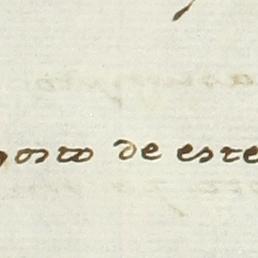 gosto de este